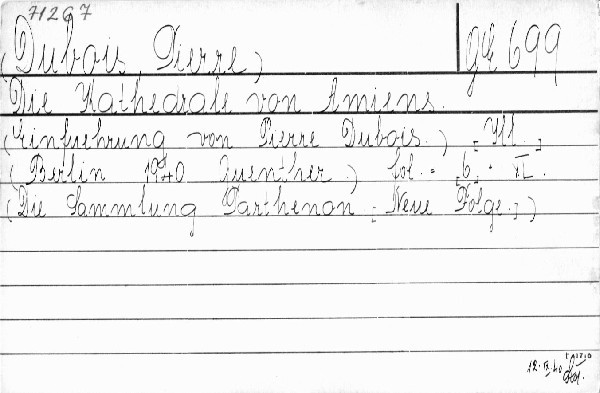 71267
(Dubois Pierre)
Die Kathedrale von Amiens.
(Einfuehrung von Pierre Dubois.) [Ill.]
(Berlin 1940 Guenther.) fol. = [6] + XL.
(Die Sammlung Parthenon [Neue Folge.])